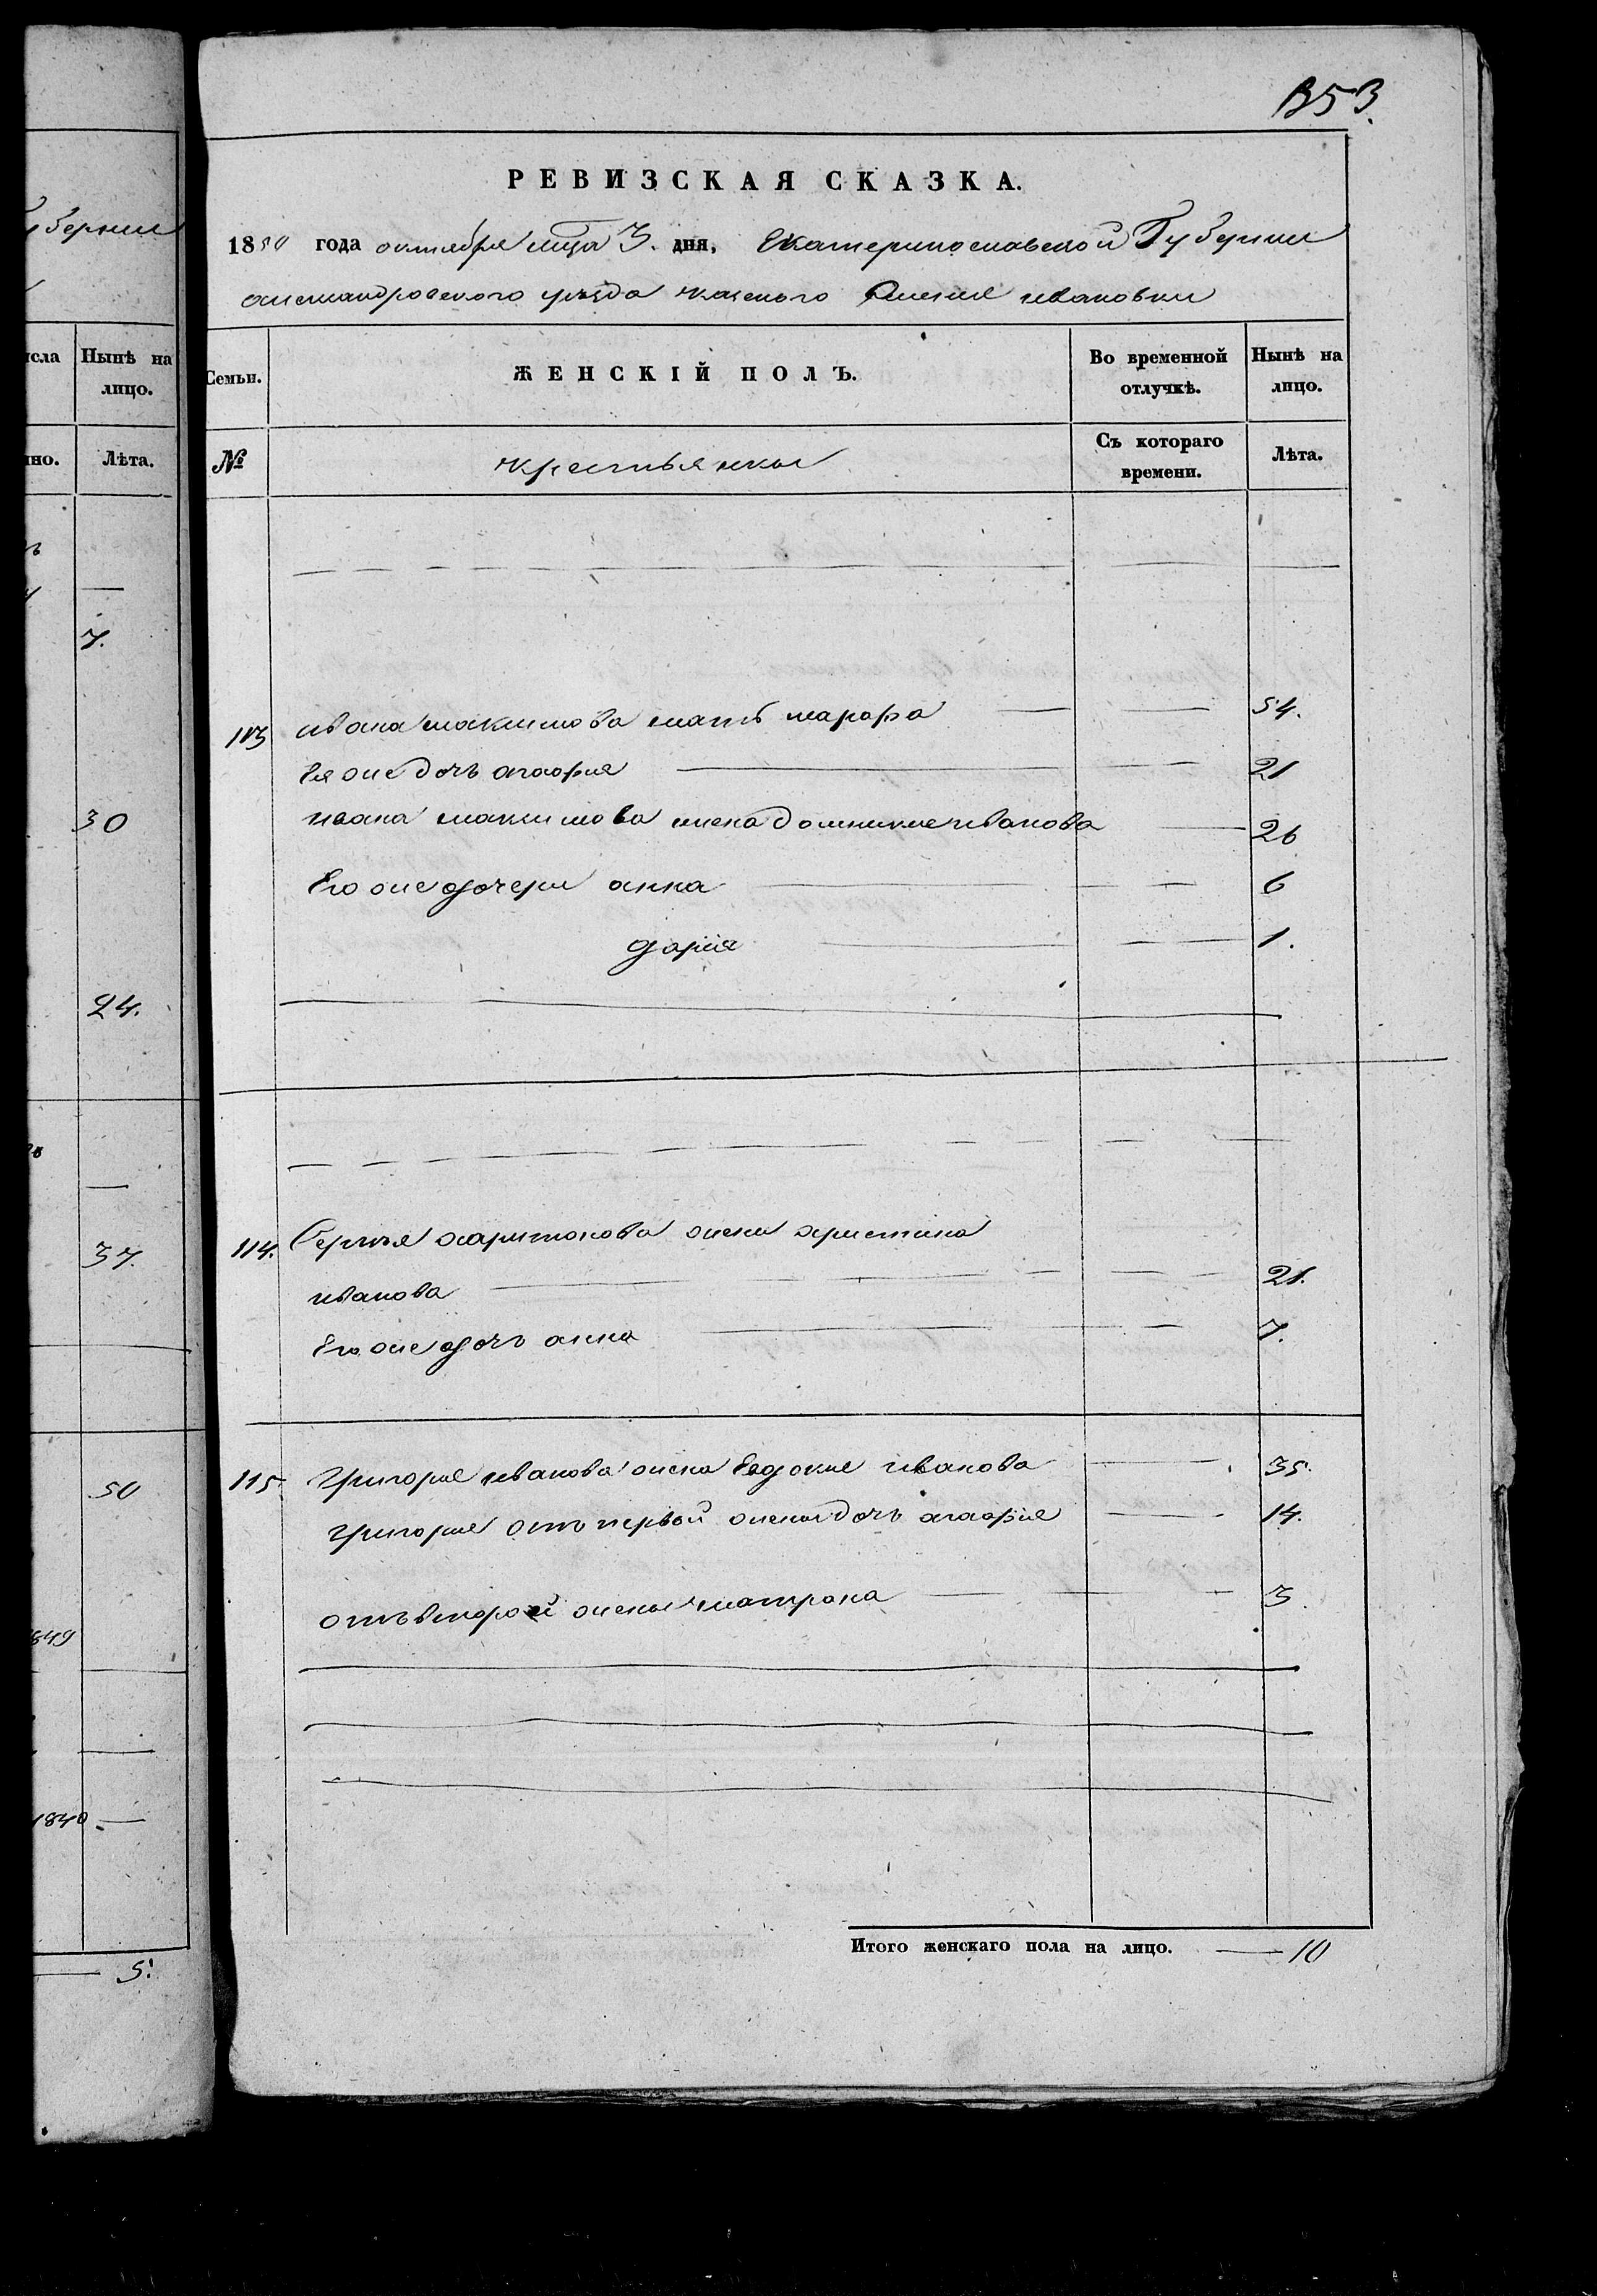 губерніи
исла Нынѣ на
лицо.
ино. Лѣта.
7.
30
24.
37.
50
1849
1840
5.
353.
РЕВИЗСКАЯ СКАЗКА.
1850 года октября мца 3. дня, Екатеринославской Губернии
александровского уезда казеного имения ивановки
Семьи. ЖЕНСКІЙ ПОЛЪ. Во временной отлучкѣ. Нынѣ на лицо.
№ крестьянки Съ котораго времени. Лѣта.
113 ивана максимова мать марфа 54.
Ея же дочь агафия 21
ивана максимова жена домникия иванова 26
Его же дочери анна 6
дария 1.
114. Сергея харитонова жена христина
иванова 21.
Его же дочь анна 7.
115 григория иванова жена Евдокия иванова 35.
григория отъ первой жены дочь агафия 14.
отъ второй жены матрона 3
Итого женскаго пола на лицо. 10